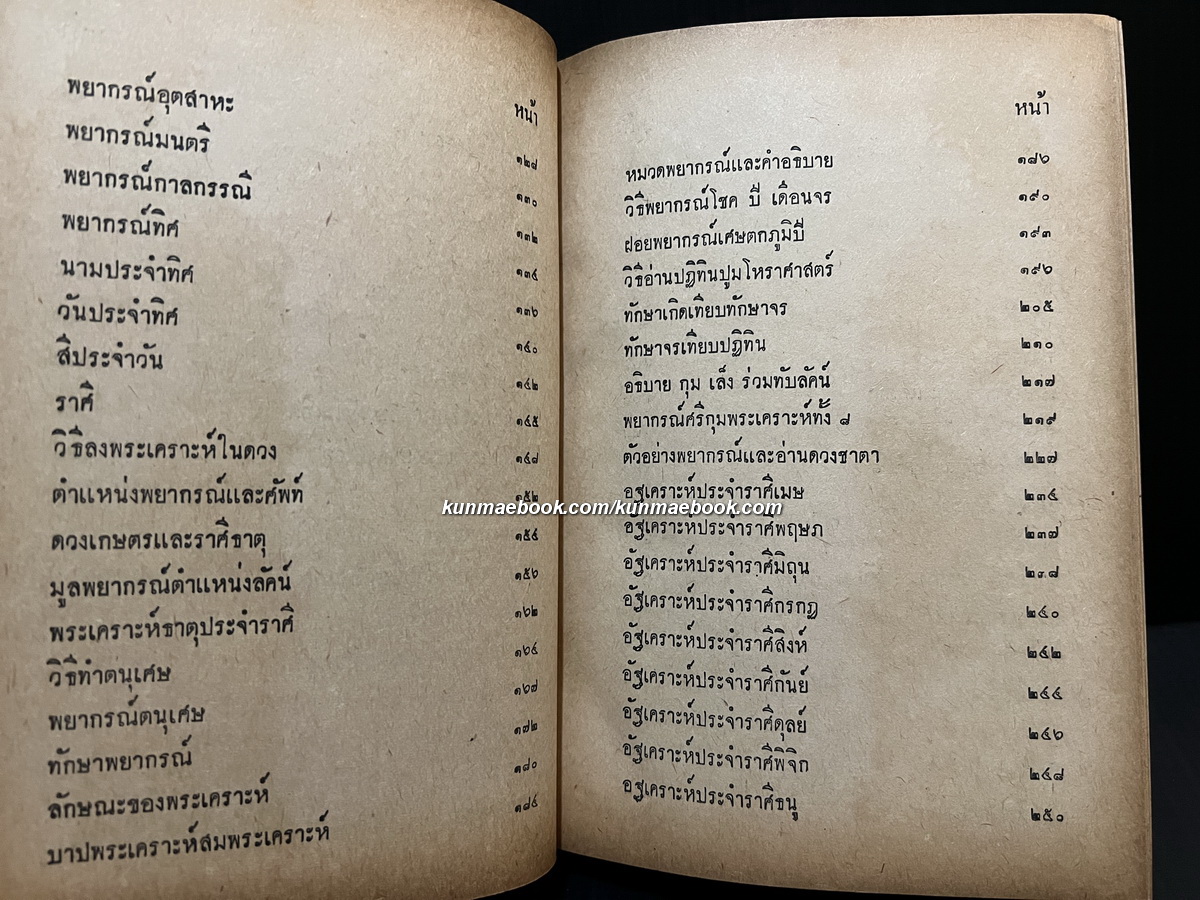 หน้า
พยากรณ์อุตสาหะ ๑๒๘
พยากรณ์มนตรี ๑๓๐
พยากรณ์กาลกรรณี ๑๓๒
พยากรณ์ทิศ ๑๓๔
นามประจำทิศ ๑๓๖
วันประจำทิศ ๑๔๐
สีประจำวัน ๑๔๒
ราศี ๑๔๕
วิธีลงพระเคราะห์ในดวง ๑๔๘
ตำแหน่งพยากรณ์และศัพท์ ๑๕๒
ดวงเกษตรและราศีธาตุ ๑๕๔
มูลพยากรณ์ตำแหน่งลัคน์ ๑๕๖
พระเคราะห์ธาตุประจำราศี ๑๖๒
วิธีทำตนุเศษ ๑๖๔
พยากรณ์ตนุเศษ ๑๖๗
ทักษาพยากรณ์ ๑๗๒
ลักษณะของพระเคราะห์ ๑๘๐
บาปพระเคราะห์สมพระเคราะห์ ๑๘๔
หน้า
หมวดพยากรณ์และคำอธิบาย ๑๘๖
วิธีพยากรณ์โชค ปี เดือนจร ๑๙๐
ฝอยพยากรณ์เศษตกภูมิปี ๑๙๓
วิธีอ่านปฏิทินปูมโหราศาสตร์ ๑๙๖
ทักษาเกิดเทียบทักษาจร ๒๐๕
ทักษาจรเทียบปฏิทิน ๒๑๐
อธิบาย กุม เล็ง ร่วมทับลัคน์ ๒๑๗
พยากรณ์ศรีกุมพระเคราะห์ทั้ง ๘ ๒๑๙
ตัวอย่างพยากรณ์และอ่านดวงชาตา ๒๒๗
อัฐเคราะห์ประจำราศีเมษ ๒๓๔
kunmaebook.com/kunmaebook.com
อัฐเคราะห์ประจำราศีพฤษภ ๒๓๗
อัฐเคราะห์ประจำราศีมิถุน ๒๓๘
อัฐเคราะห์ประจำราศีกรกฎ ๒๔๐
อัฐเคราะห์ประจำราศีสิงห์ ๒๔๒
อัฐเคราะห์ประจำราศีกันย์ ๒๔๔
อัฐเคราะห์ประจำราศีดุลย์ ๒๔๖
อัฐเคราะห์ประจำราศีพิจิก ๒๔๘
อัฐเคราะห์ประจำราศีธนู ๒๕๐